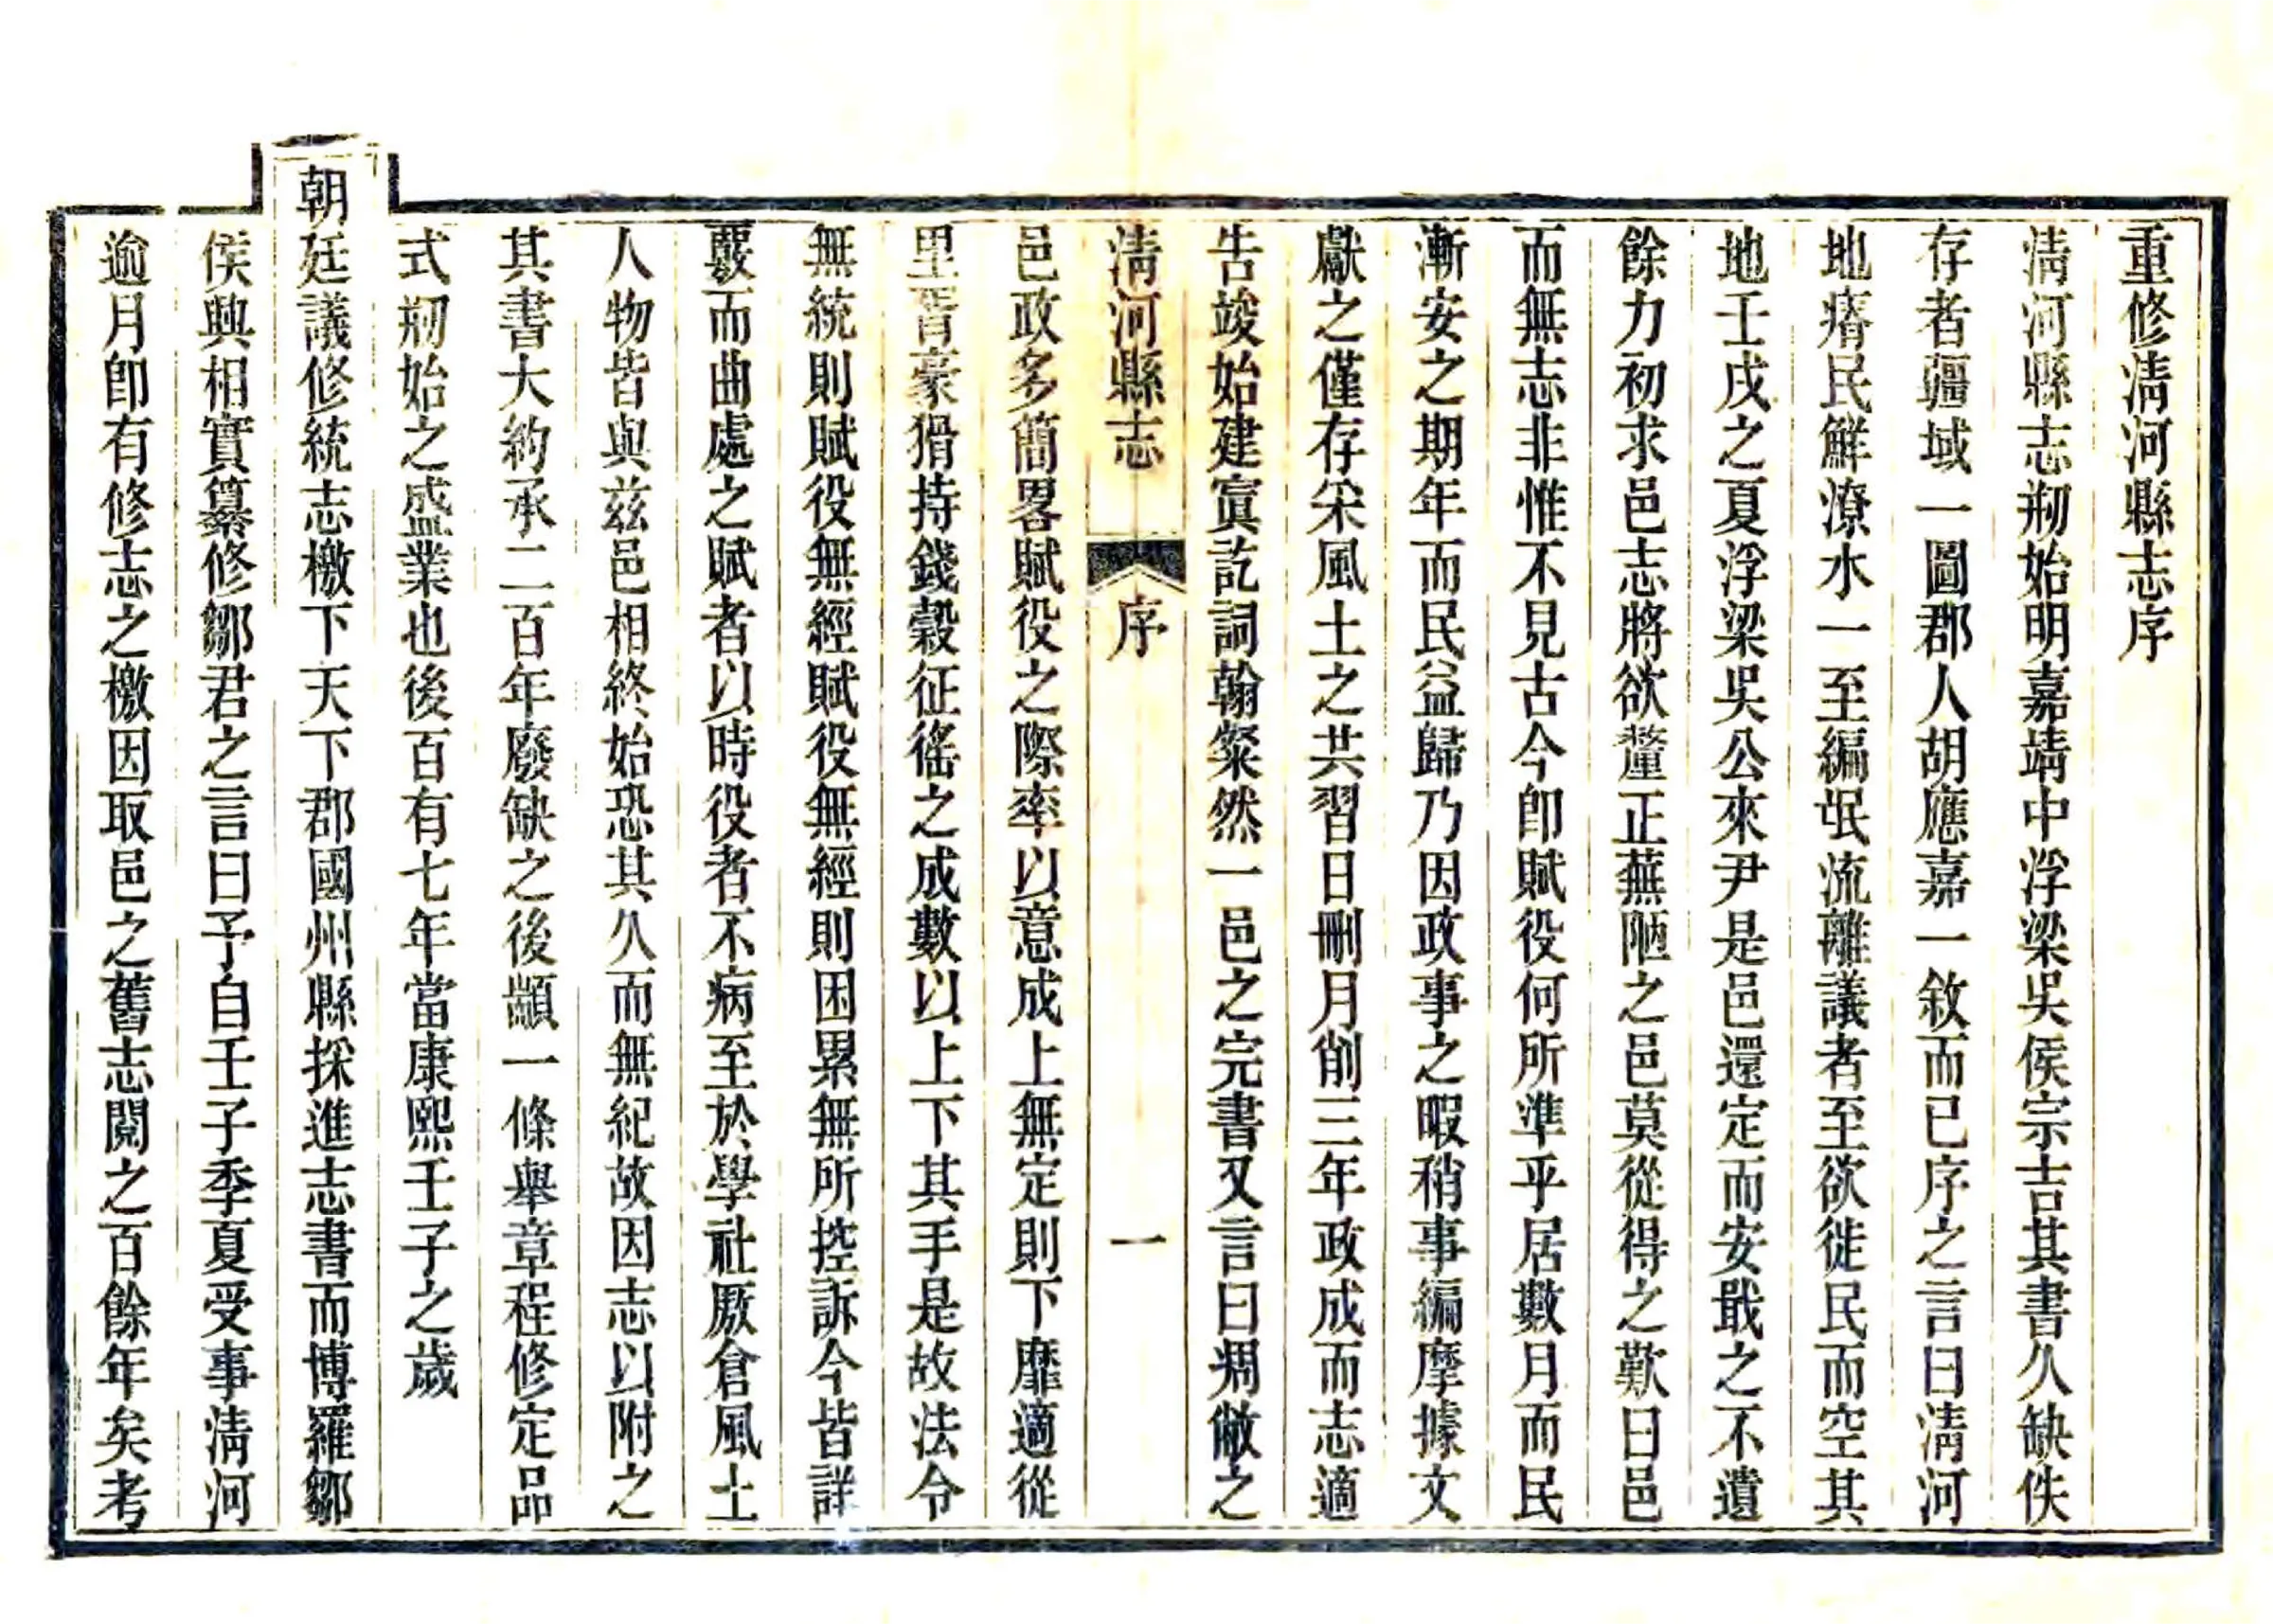 重修淸河縣志序
淸河縣志刱始明嘉靖中浮梁吳侯宗吉其書久缺佚
存者疆域一圖郡人胡應嘉一敘而已序之言曰淸河
地瘠民鮮潦水一至編氓流離議者至欲徙民而空其
地壬戌之夏浮梁吳公來尹是邑還定而安戢之不遺
餘力初求邑志將欲釐正蕪陋之邑莫從得之歎曰邑
而無志非惟不見古今卽賦役何所準乎居數月而民
漸安之期年而民益歸乃因政事之暇稍事編摩據文
獻之僅存宋風土之共習日刪月削三年政成而志適
吿竣始建寘訖詞翰粲然一邑之完書又言曰凋敝之
淸河縣志 序 一
邑政多簡畧賦役之際率以意成上無定則下靡適從
里胥豪猾持錢穀征徭之成數以上下其手是故法令
無統則賦役無經賦役無經則困累無所控訴今皆詳
覈而曲處之賦者以時役者不病至於學社厫倉風土
人物皆與玆邑相終始恐其久而無紀故因志以附之
其書大約承二百年廢缺之後顓一條舉章程修定品
式刱始之盛業也後百有七年當康熙壬子之歲
朝廷議修統志檄下天下郡國州縣採進志書而博羅鄒
侯興相實纂修鄒君之言曰予自壬子季夏受事淸河
逾月卽有修志之檄因取邑之舊志閱之百餘年矣考